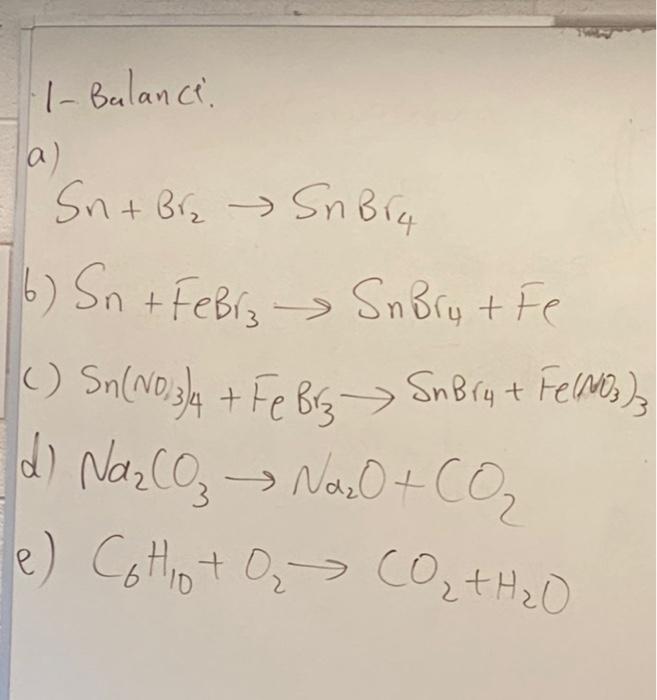 1- Balance.
a)
Sn + Br₂ → SnBr₄
b) Sn + FeBr₃ → SnBr₄ + Fe
c) Sn(NO₃)₄ + FeBr₃ → SnBr₄ + Fe(NO₃)₃
d) Na₂CO₃ → Na₂O + CO₂
e) C₆H₁₀ + O₂ → CO₂ + H₂O